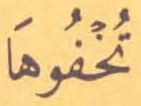 تُخْفُوهَا